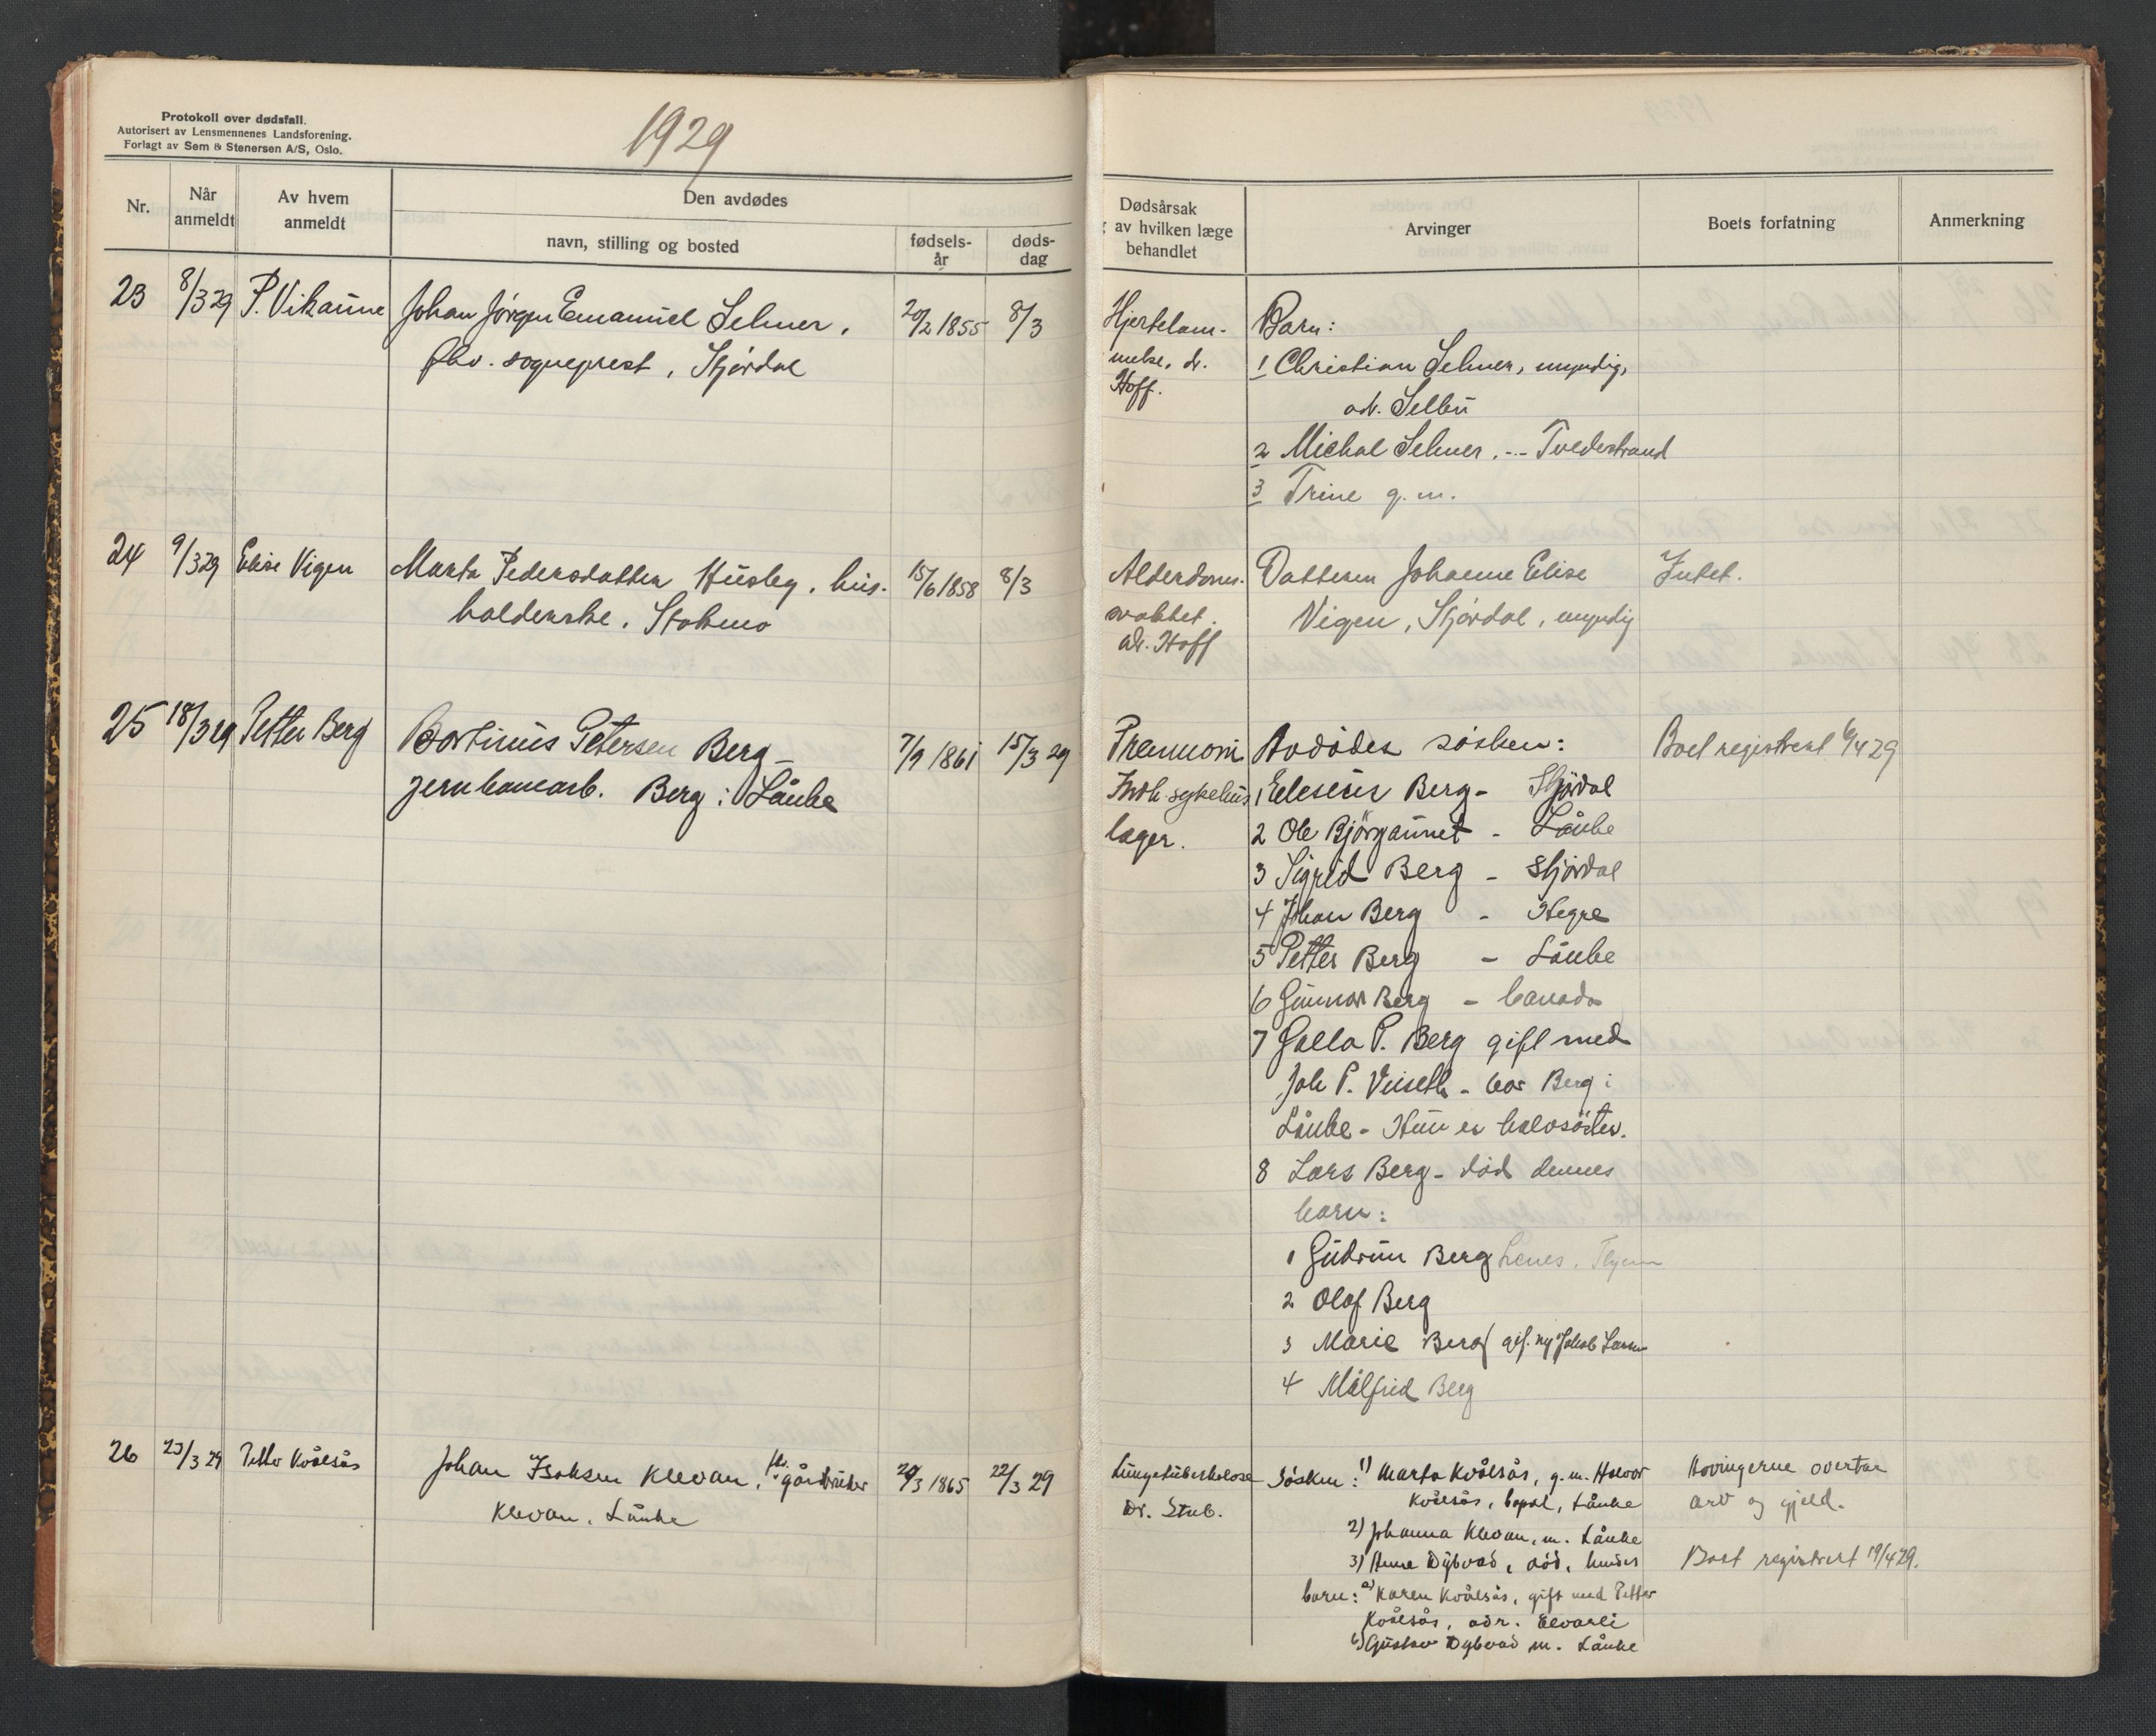 Protokoll over dødsfall.
Autorisert av Lensmennenes Landsforening.
Forlagt av Sem & Stenersen A/S, Oslo.
1929
Nr.
Når anmeldt
Av hvem anmeldt
Den avdødes
navn, stilling og bosted
fødsels-
år
døds-
dag
Dødsårsak
av hvilken læge
behandlet
Arvinger
Boets forfatning
Anmerkning
23 8/3 29 P. Vikaune Johan Jörgen Emanuel Selmer, 20/2 1855 8/3
fhv. sogneprest, Stjördal
Hjertelam-
melse, dr.
Hoff.
Barn:
1 Christian Selmer, myndig,
adr. Selbu
2 Michal Selmer, -"- Tvedestrand
3 Trine g. m.
24 9/3 29 Elise Vigen Marta Pedersdatter Husby, hus- 15/6 1858 8/3
holderske, Stokmo
Alderdoms-
svakhet.
dr. Hoff
Datteren Johanne Elise
Vigen, Stjördal, myndig
Intet.
25 18/3 29 Petter Berg Bortinus Petersen Berg - 7/9 1861 15/3 29
jernbanearb. Berg i Lånke
Pneumoni
Innh. sykehus
læger.
Avdödes sösken:
1 Eleseus Berg - Stjördal
2 Ole Björgaunet - Lånke
3 Sigrid Berg - Stjördal
4 Johan Berg - Hegre
5 Petter Berg - Lånke
6 Gunnar Berg - Canada
7 Golla P. Berg gift med
Joh P. Viiseth - bor Berg i
Lånke - Hun er halvsöster.
8 Lars Berg - död dennes
barn:
1 Gudrun Berg
2 Olaf Berg
3 Marie Berg gift m/ Jakob Larsen
4 Målfrid Berg
Boet registrert 6/4 29
26 23/3 29 Petter Kvålsås Johan Isaksen Klevan, fhv. gårdbruker 20/3 1865 22/3 29
Klevan, Lånke
Lungetuberkulose
Dr. Stub.
Sösken: 1) Marta Kvålsås, g. m. Halvor
Kvålsås, bopæl, Lånke
2) Johanna Klevan, m. Lånke
3) Anne Dybvad, död, hendes
barn: a) Karen Kvålsås, gift med Petter
Kvålsås, adr. Elvarli
b) Gustav Dybvad m. Lånke
Arvingerne overtar
arv og gjeld.
Boet registrert 19/4 29.